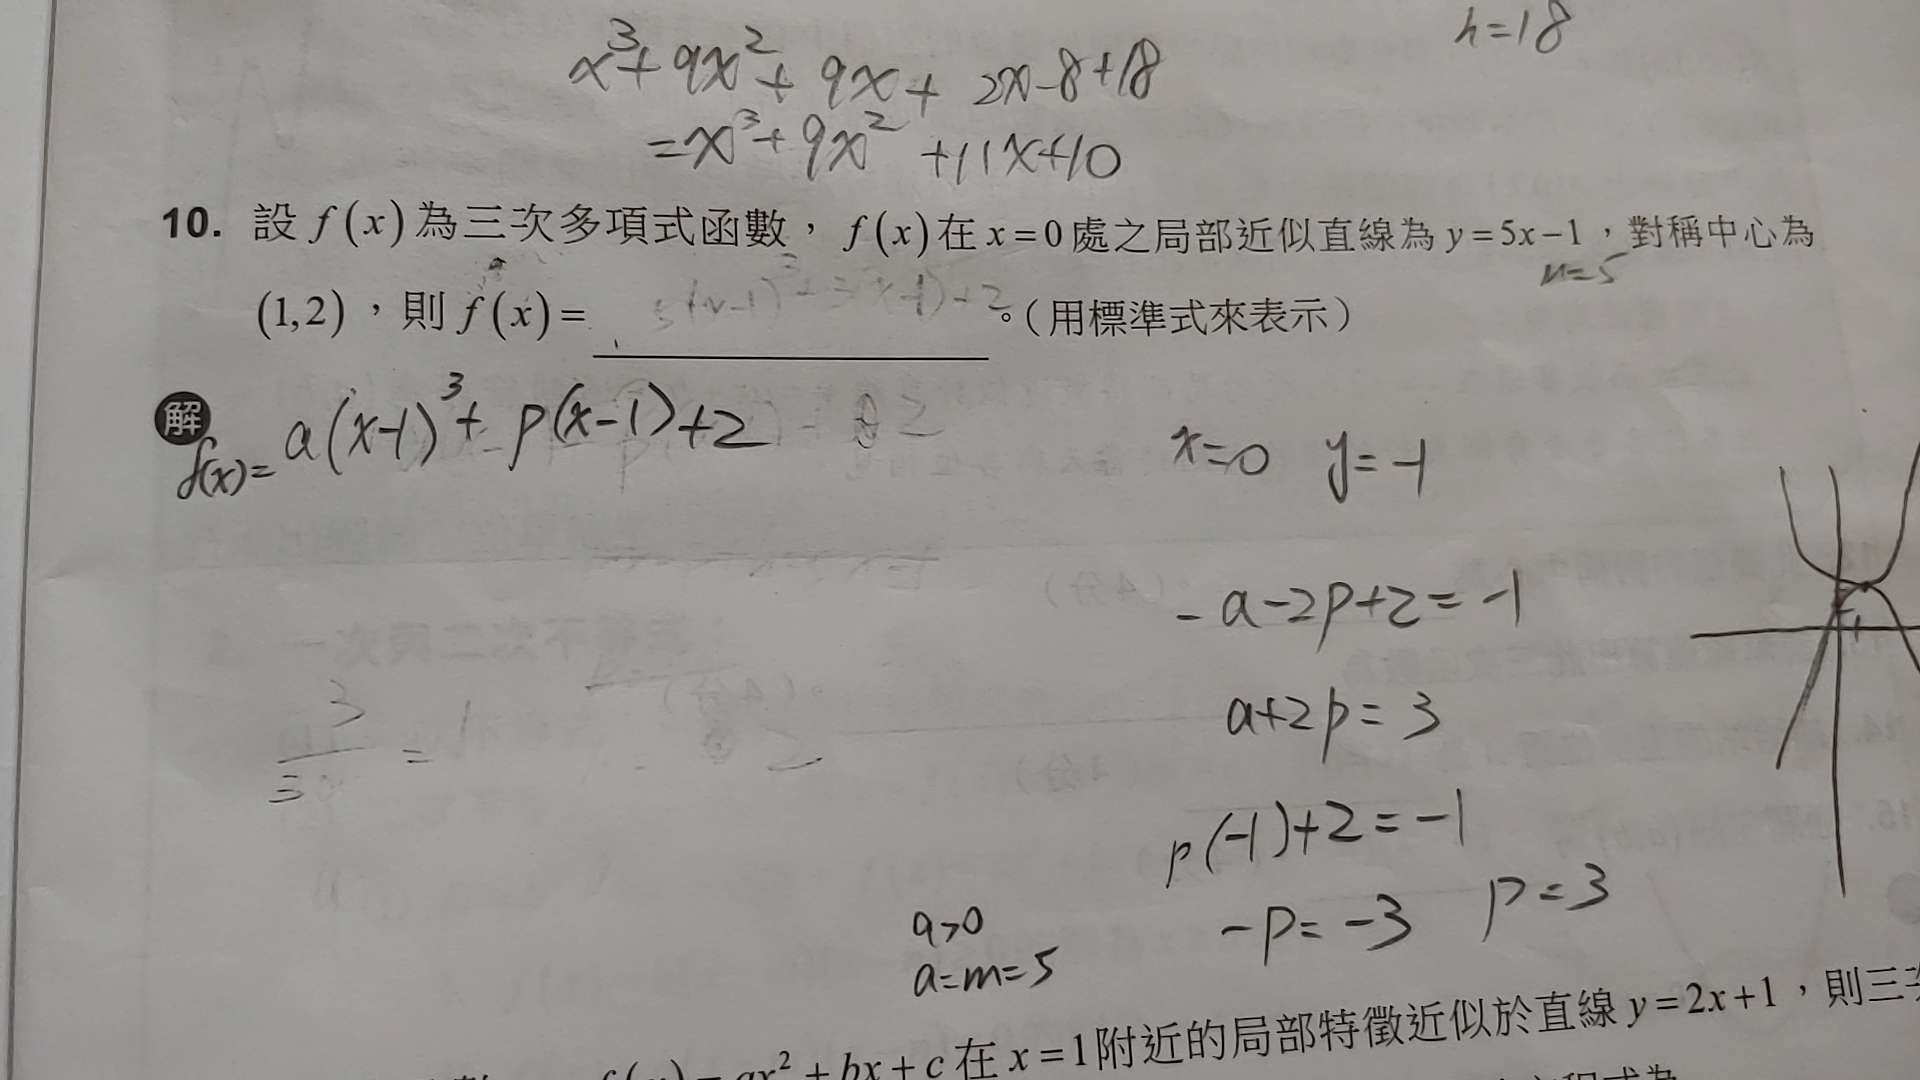 h=18
x³+9x²+9x+2x-8+18
=x³+9x²+11x+10
10. 設 f(x) 為三次多項式函數，f(x) 在 x=0 處之局部近似直線為 y=5x-1，對稱中心為
m=5
(1,2)，則 f(x)= 。（用標準式來表示）
解 f(x)= a(x-1)³+p(x-1)+2
x=0 y=-1
-a-2p+2=-1
a+2p=3
p(-1)+2=-1
-p=-3 p=3
a>0
a=m=5
ax²+bx+c 在 x=1 附近的局部特徵近似於直線 y=2x+1，則三